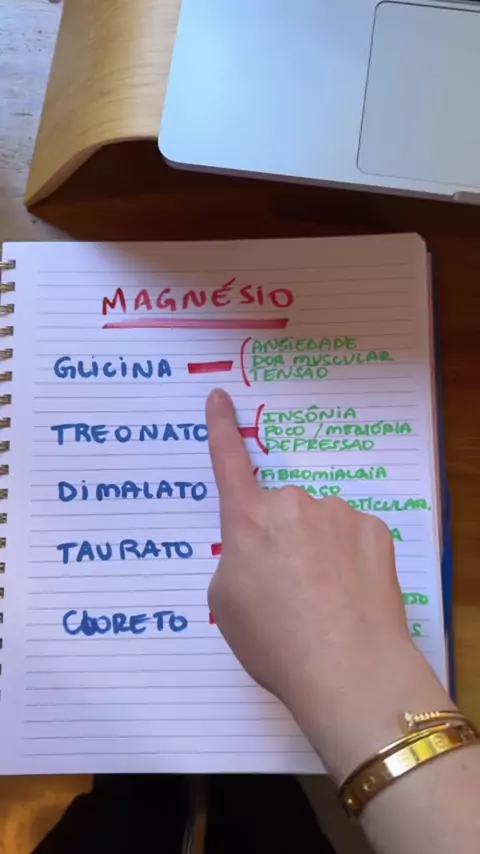 MAGNÉSIO
GLICINA
ANSIEDADE
DOR MUSCULAR
TENSÃO
TREONATO
INSÔNIA
FOCO / MEMÓRIA
DEPRESSÃO
DIMALATO
FIBROMIALGIA
TICULAR.
TAURATO
A
CLORETO
S